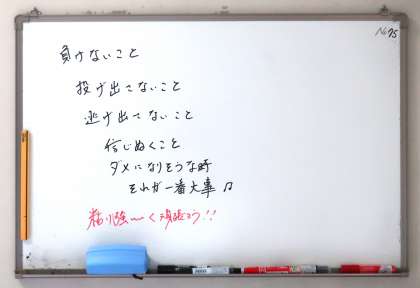 No.75
負けないこと
投げ出さないこと
逃げ出さないこと
信じぬくこと
ダメになりそうな時
それが一番大事♫
粘り強〜く頑張ろう!!